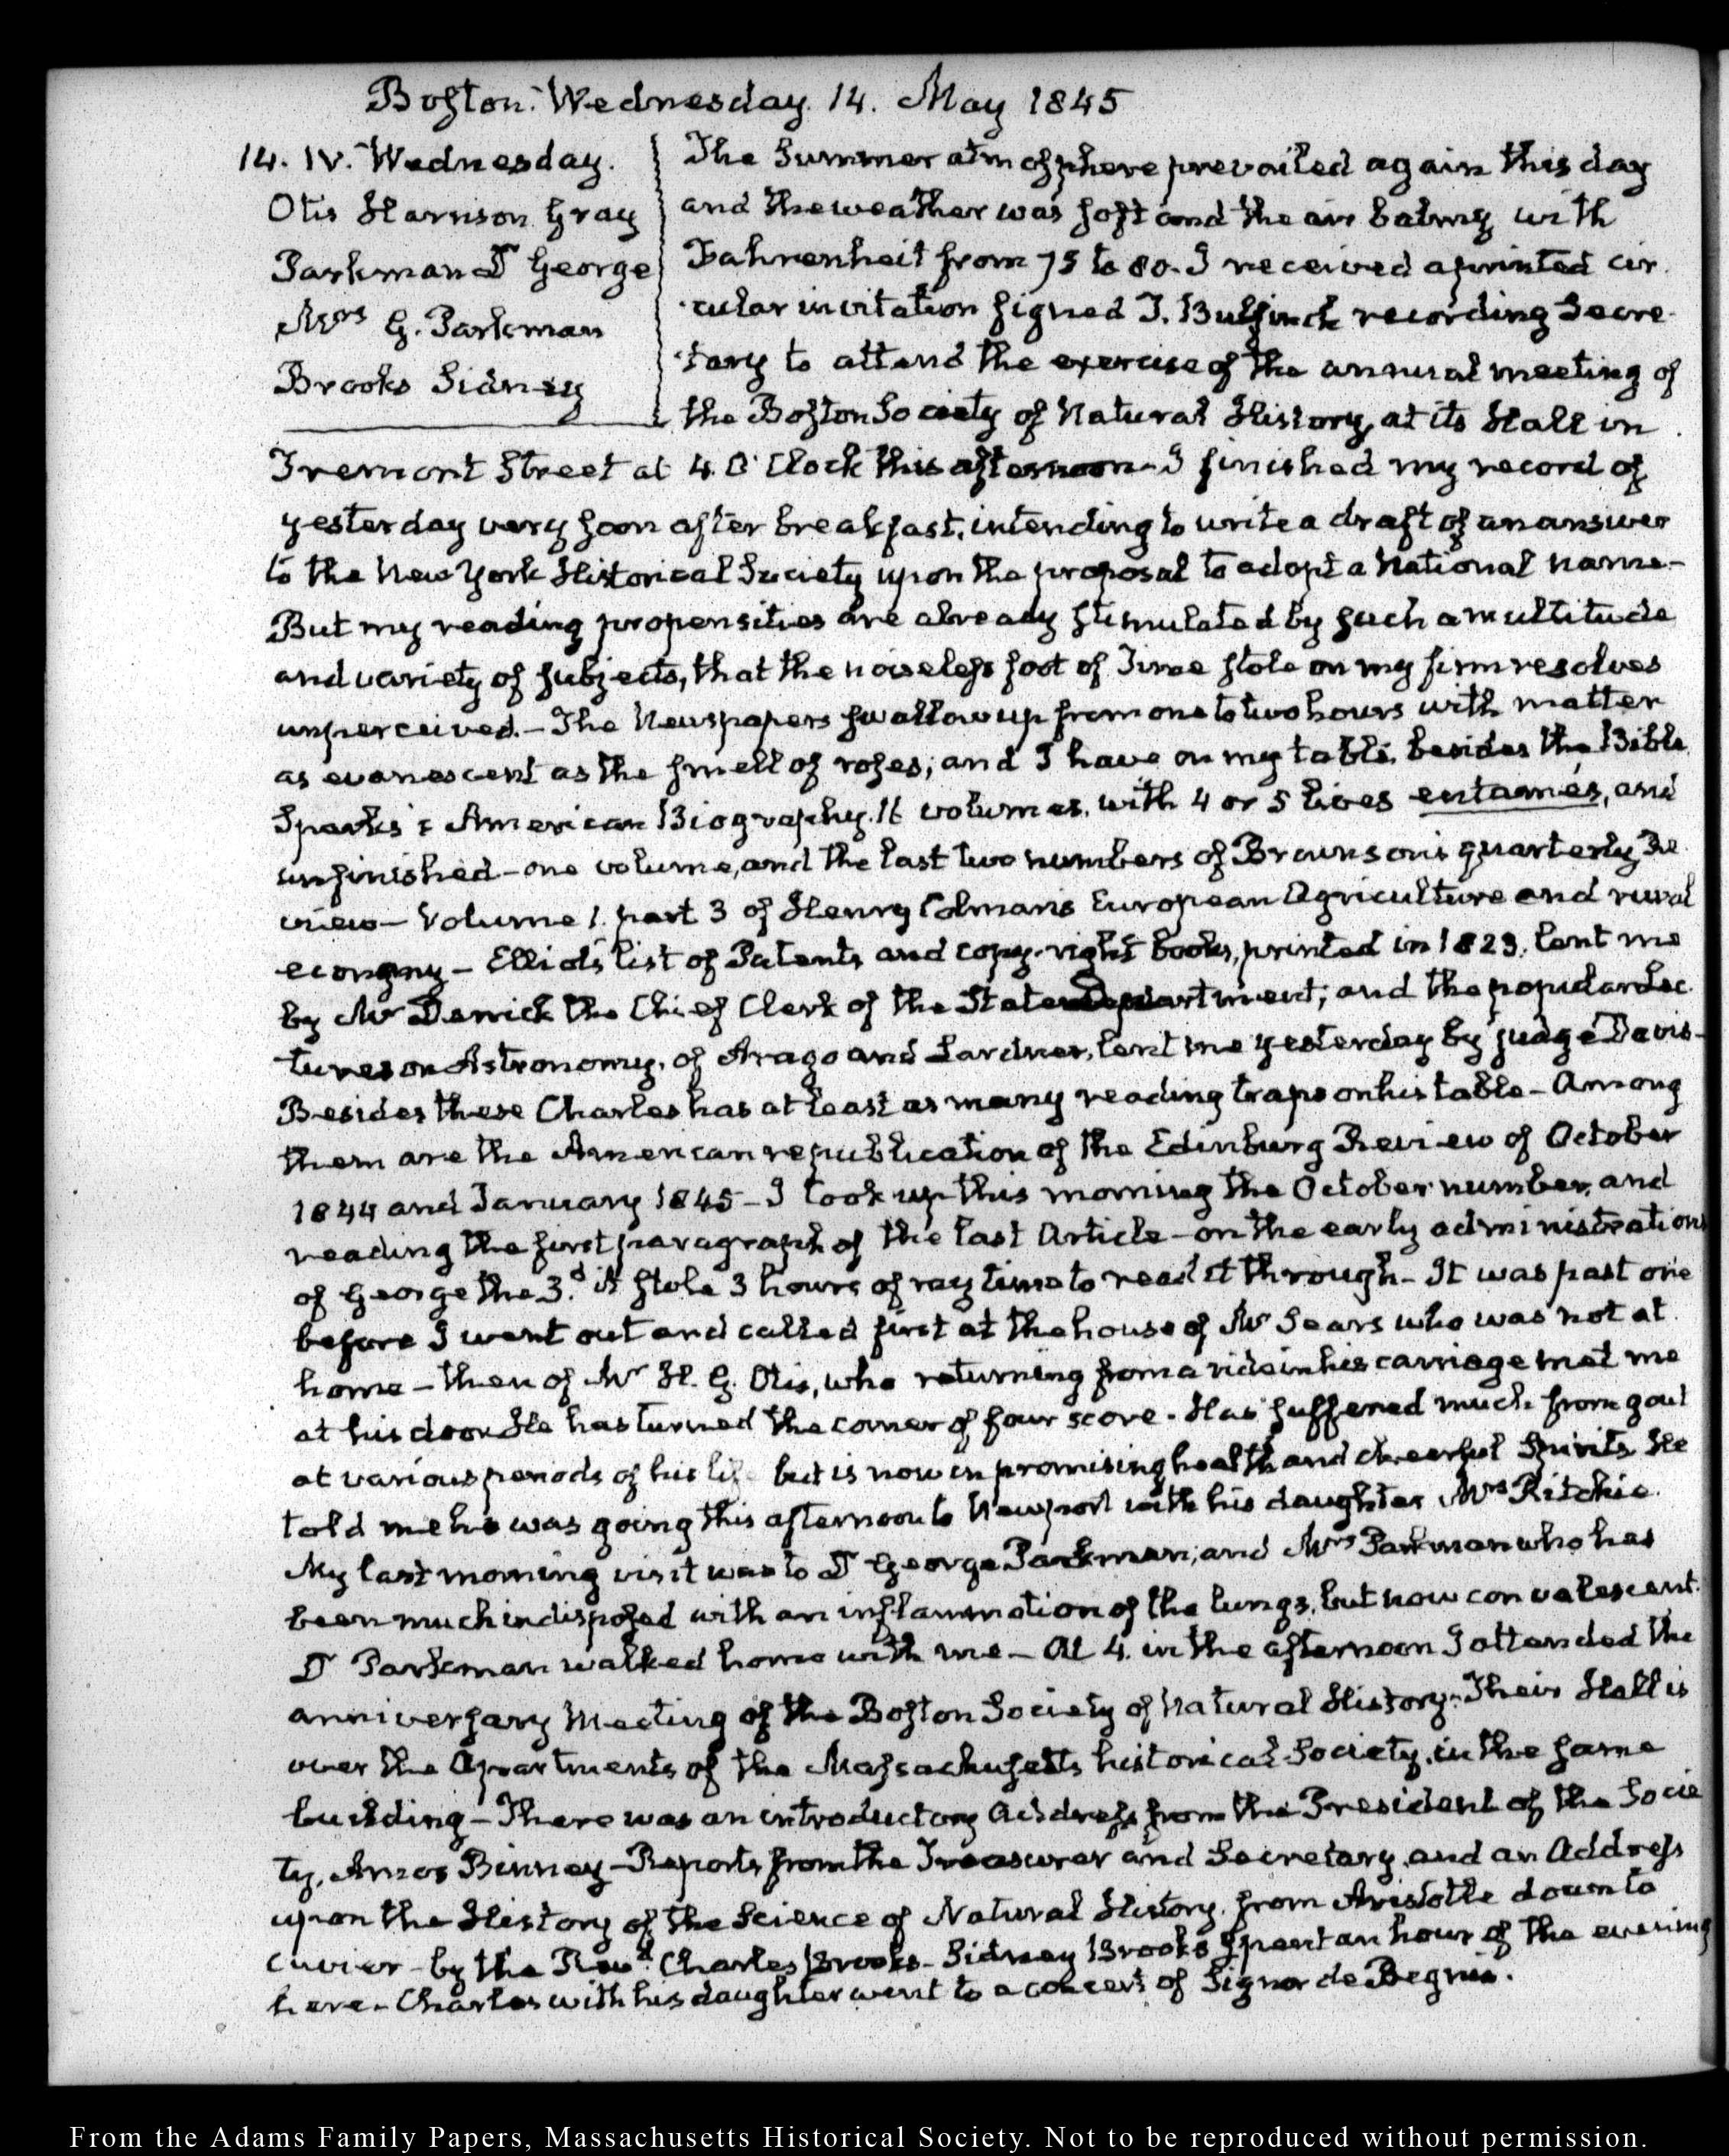 Boston. Wednesday. 14. May 1845
14. IV. Wednesday.
Otis Harrison Gray
Parkman Dr George
Mrs G. Parkman
Brooks Sidney
The Summer atmosphere prevailed again this day
and the weather was soft and the air balmy with
Fahrenheit from 75 to 80. I received a printed cir
cular invitation signed T. Bulfinch recording Secre-
tary to attend the exercise of the annual meeting of
the Boston Society of Natural History, at its Hall in
Tremont Street at 4. O'Clock this afternoon- I finished my record of
yesterday very soon after breakfast, intending to write a draft of an answer
to the New York Historical Society upon the proposal to adopt a National name-
But my reading propensities are already stimulated by such a multitude
and variety of subjects, that the noiseless foot of Time stole on my firm resolves
unperceived.- The Newspapers swallow up from one to two hours with matter
as evanescent as the smell of roses; and I have on my table, besides the Bible
Sparks's American Biography. 16 volumes. with 4 or 5 lives entamés, and
unfinished- one volume, and the last two numbers of Brownson's quarterly Re
view- Volume 1. part 3 of Henry Colman's European Agriculture and rural
economy- Elliot's list of Patents and copy-right books, printed in 1823. lent me
by Mr Derrick the Chief Clerk of the State Department; and the popular Lec
tures on Astronomy, of Arago and Lardner, lent me yesterday by judge Davis-
Besides these Charles has at least as many reading traps on his table- Among
them are the American republication of the Edinburg Review of October
1844 and January 1845- I took up this morning the October number, and
reading the first paragraph of the last Article- on the early administrations
of George the 3.d it stole 3 hours of my time to read it through- It was past one
before I went out and called first at the house of Mr Sears who was not at
home- then of Mr H. G. Otis, who returning from a ride in his carriage met me
at his door He has turned the corner of four score. Has suffered much from gout
at various periods of his life but is now in promising health and cheerful Spirits. He
told me he was going this afternoon to Newport with his daughter Mrs Ritchie.
My last morning visit was to Dr George Parkman; and Mrs Parkman who has
been much indisposed with an inflammation of the lungs, but now convalescent.
Dr Parkman walked home with me- At 4. in the afternoon I attended the
anniversary Meeting of the Boston Society of Natural History. Their Hall is
over the Apartments of the Massachusetts historical Society, in the same
building- There was an introductory Address from the President of the Socie
ty, Amos Binney- Reports from the Treasurer and Secretary, and an Address
upon the History of the Science of Natural History. from Aristotle down to
Cuvier- by the Revd. Charles Brooks- Sidney Brooks spent an hour of the evening
here- Charles with his daughter went to a concert of Signor de Begnis.
From the Adams Family Papers, Massachusetts Historical Society. Not to be reproduced without permission.